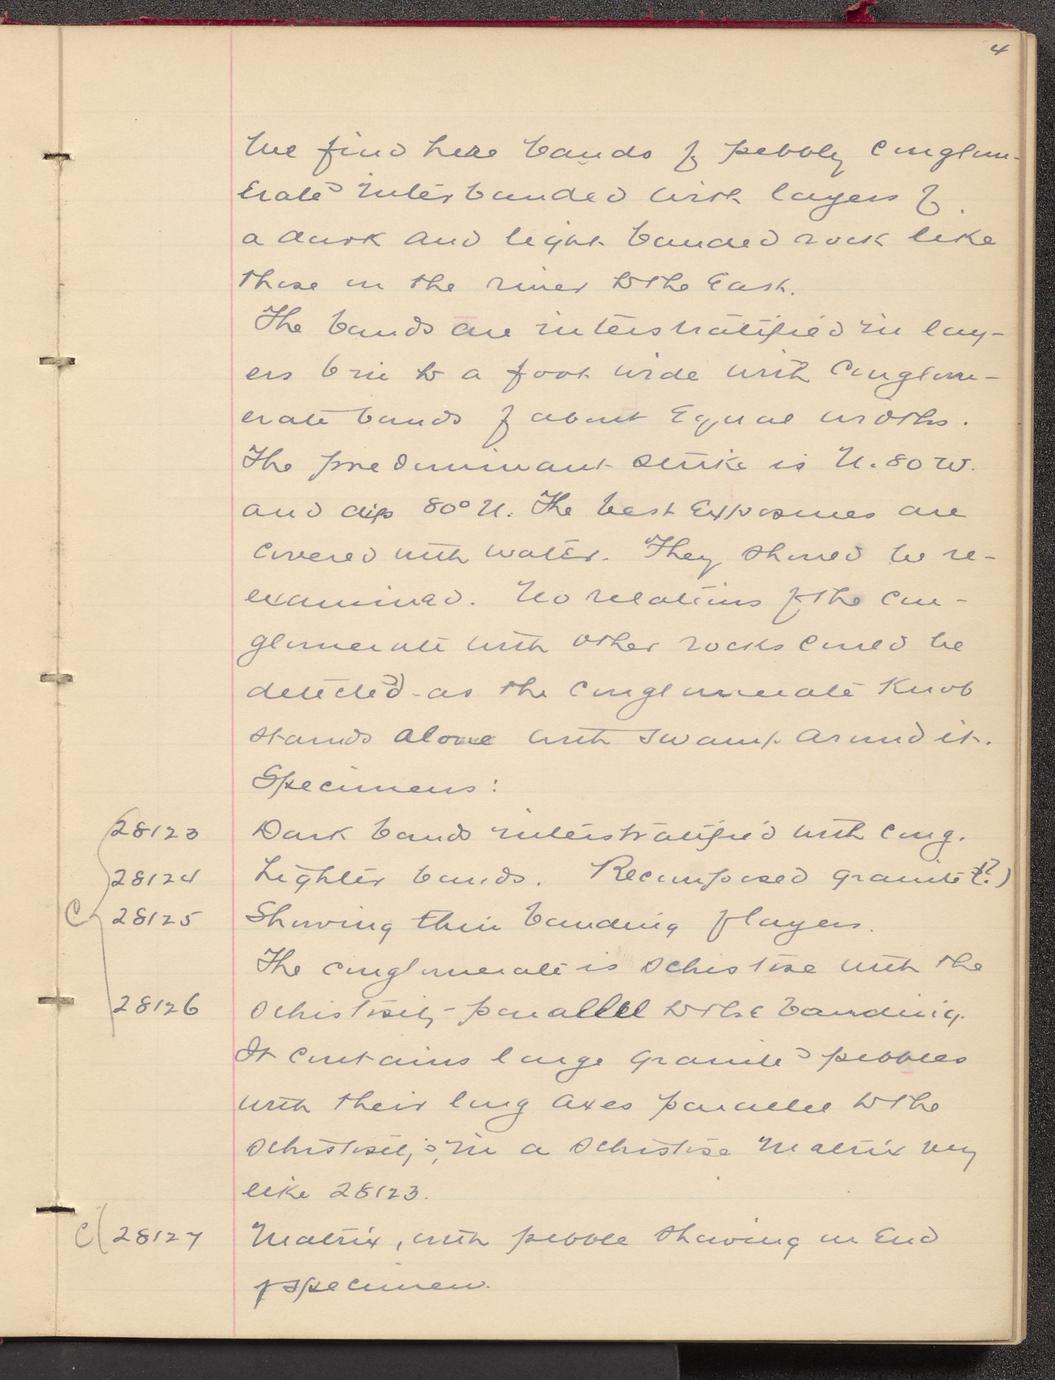 4
We find here bands of pebbly conglom-
erate interbanded with layers of
a dark and light banded rock like
those in the river to the East.
The bands are interstratified in lay-
ers 6 in to a foot wide with conglom-
erate bands of about equal widths.
The predominant strike is N. 80 W.
and dip 80° N. The best exposures are
covered with water. They should be re-
examined. No relations of the con-
glomerate with other rocks could be
detected - as the conglomerate knob
stands alone with swamp around it.
Specimens:
28123 Dark bands interstratified with cong.
28124 Lighter bands. Recomposed granite (?)
C 28125 Showing thin banding of layers.
The conglomerate is schistose with the
28126 schistosity parallel to the banding.
It contains large granite pebbles
with their long axes parallel to the
schistosity; in a schistose matrix very
like 28123.
C 28127 Matrix, with pebble showing on end
of specimen.